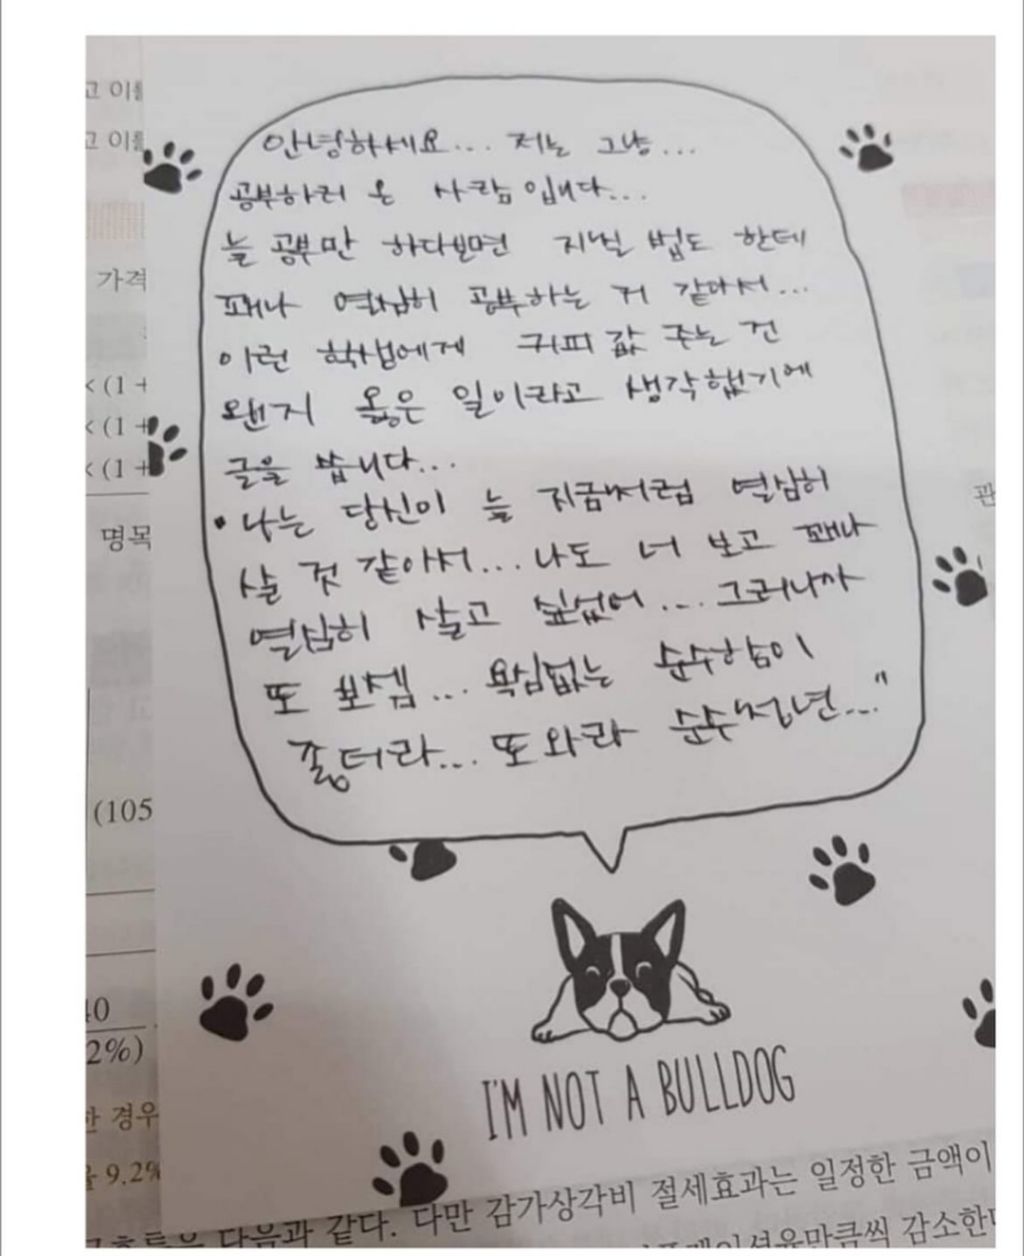 고 이를
고 이를
가격
× (1 +
× (1 +
× (1 +
명목
(105
40
2%)
한 경우
율 9.2%
관
안녕하세요... 저는 그냥...
공부하러 온 사람입니다...
늘 공부만 하다보면 지닐 법도 한데
꽤나 열심히 공부하는 거 같아서...
이런 학생에게 커피 값 주는 건
왠지 옳은 일이라고 생각했기에
글을 씁니다...
• 나는 당신이 늘 지금처럼 열심히
살 것 같아서... 나도 너 보고 꽤나
열심히 살고 싶었어.... 그러니까
또 보셈... 욕심없는 순수함이
좋더라... 또 와라 순수청년..."
I'M NOT A BULLDOG
다음과 같다. 다만 감가상각비 절세효과는 일정한 금액이
만큼씩 감소한